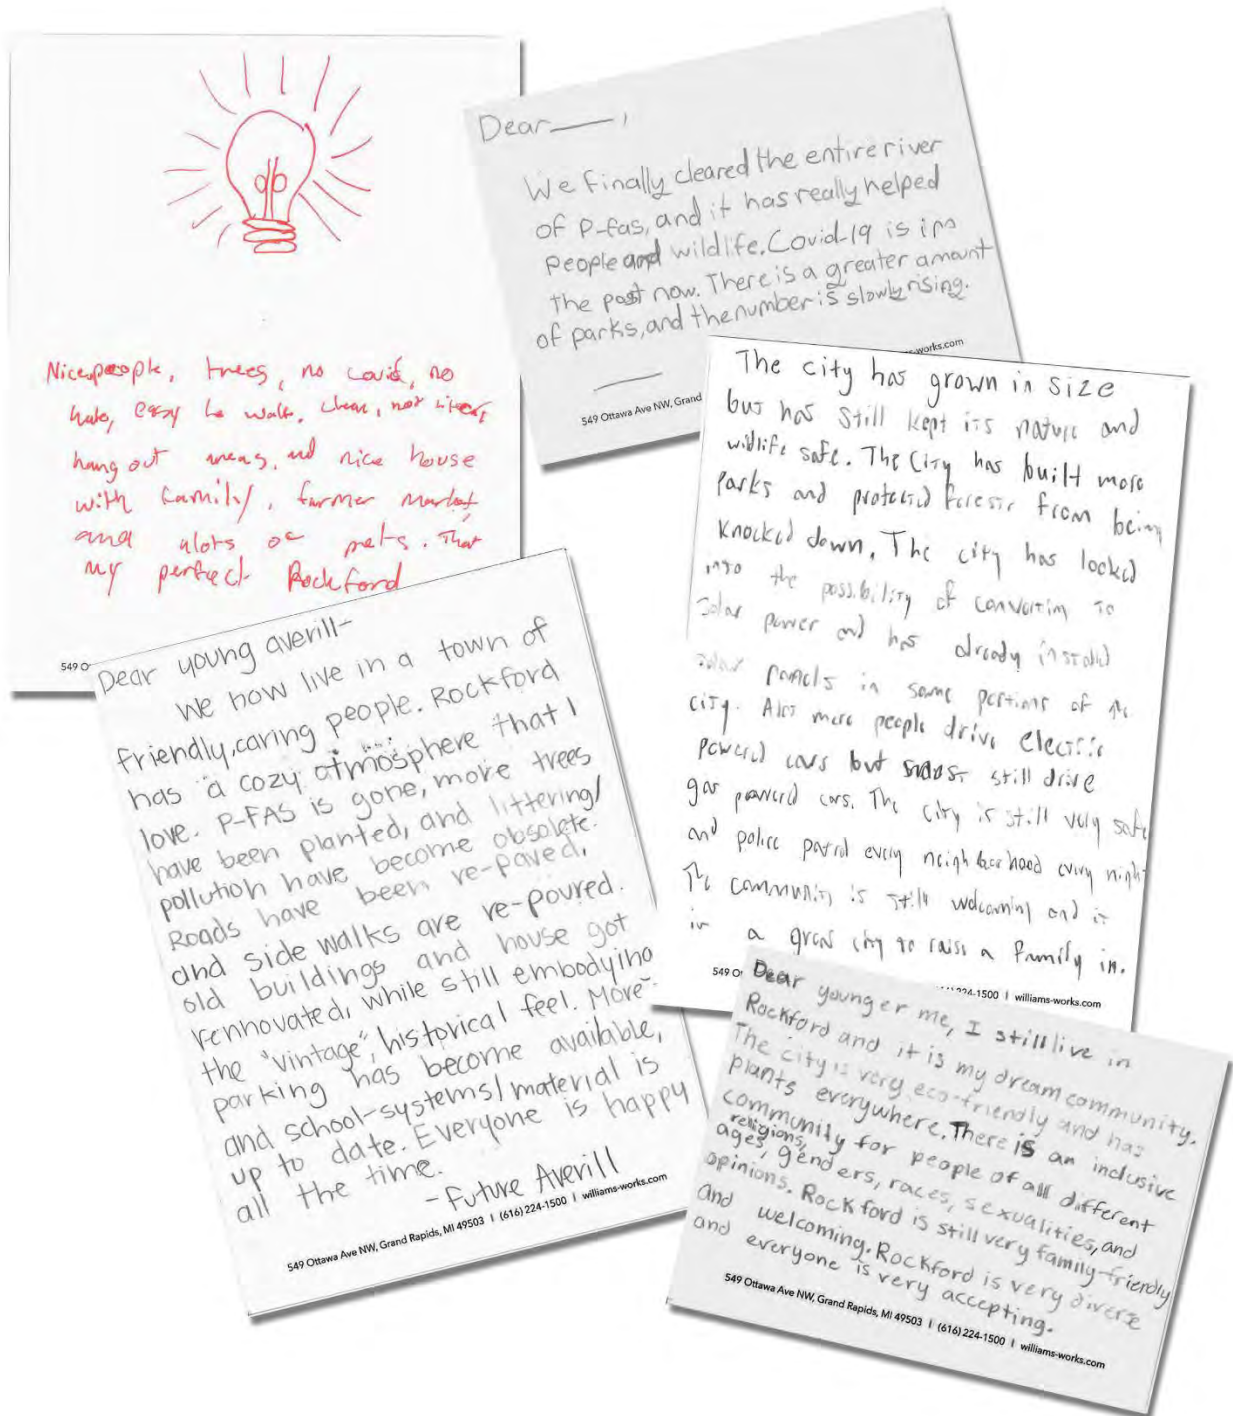 Nice people, trees, no covid, no
hate, easy to walk, clean, not litter,
hang out areas, and nice house
with family, farmer market
and alots of pets. That
my perfect Rockford
549 O
Dear ——,
We finally cleared the entire river
of P-fas, and it has really helped
people and wildlife. Covid-19 is in
the past now. There is a greater amount
of parks, and the number is slowly rising.
-works.com
549 Ottawa Ave NW, Grand
The city has grown in size
but has still kept its nature and
wildlife safe. The City has built more
parks and protected forests from being
knocked down. The city has looked
into the possibility of converting to
solar power and has already installed
solar panels in some portions of the
city. Also more people drive electric
powered cars but most still drive
gas powered cars. The city is still very safe
and police patrol every neighborhood every night
The community is still welcoming and it
is a great city to raise a family in.
549 O 224-1500 | williams-works.com
Dear young averill-
We now live in a town of
friendly, caring people. Rockford
has a cozy atmosphere that I
love. P-FAS is gone, more trees
have been planted, and littering/
pollution have become obsolete.
Roads have been re-paved,
and side walks are re-poured.
old buildings and house got
rennovated, while still embodying
the "vintage", historical feel. More
parking has become available,
and school-systems/material is
up to date. Everyone is happy
all the time.
-Future Averill
549 Ottawa Ave NW, Grand Rapids, MI 49503 | (616) 224-1500 | williams-works.com
Dear younger me, I still live in
Rockford and it is my dream community.
The city is very eco-friendly and has
plants everywhere. There is an inclusive
community for people of all different
religions,
ages, genders, races, sexualities, and
opinions. Rockford is still very family-friendly
and welcoming. Rockford is very diverse
and everyone is very accepting.
549 Ottawa Ave NW, Grand Rapids, MI 49503 | (616) 224-1500 | williams-works.com